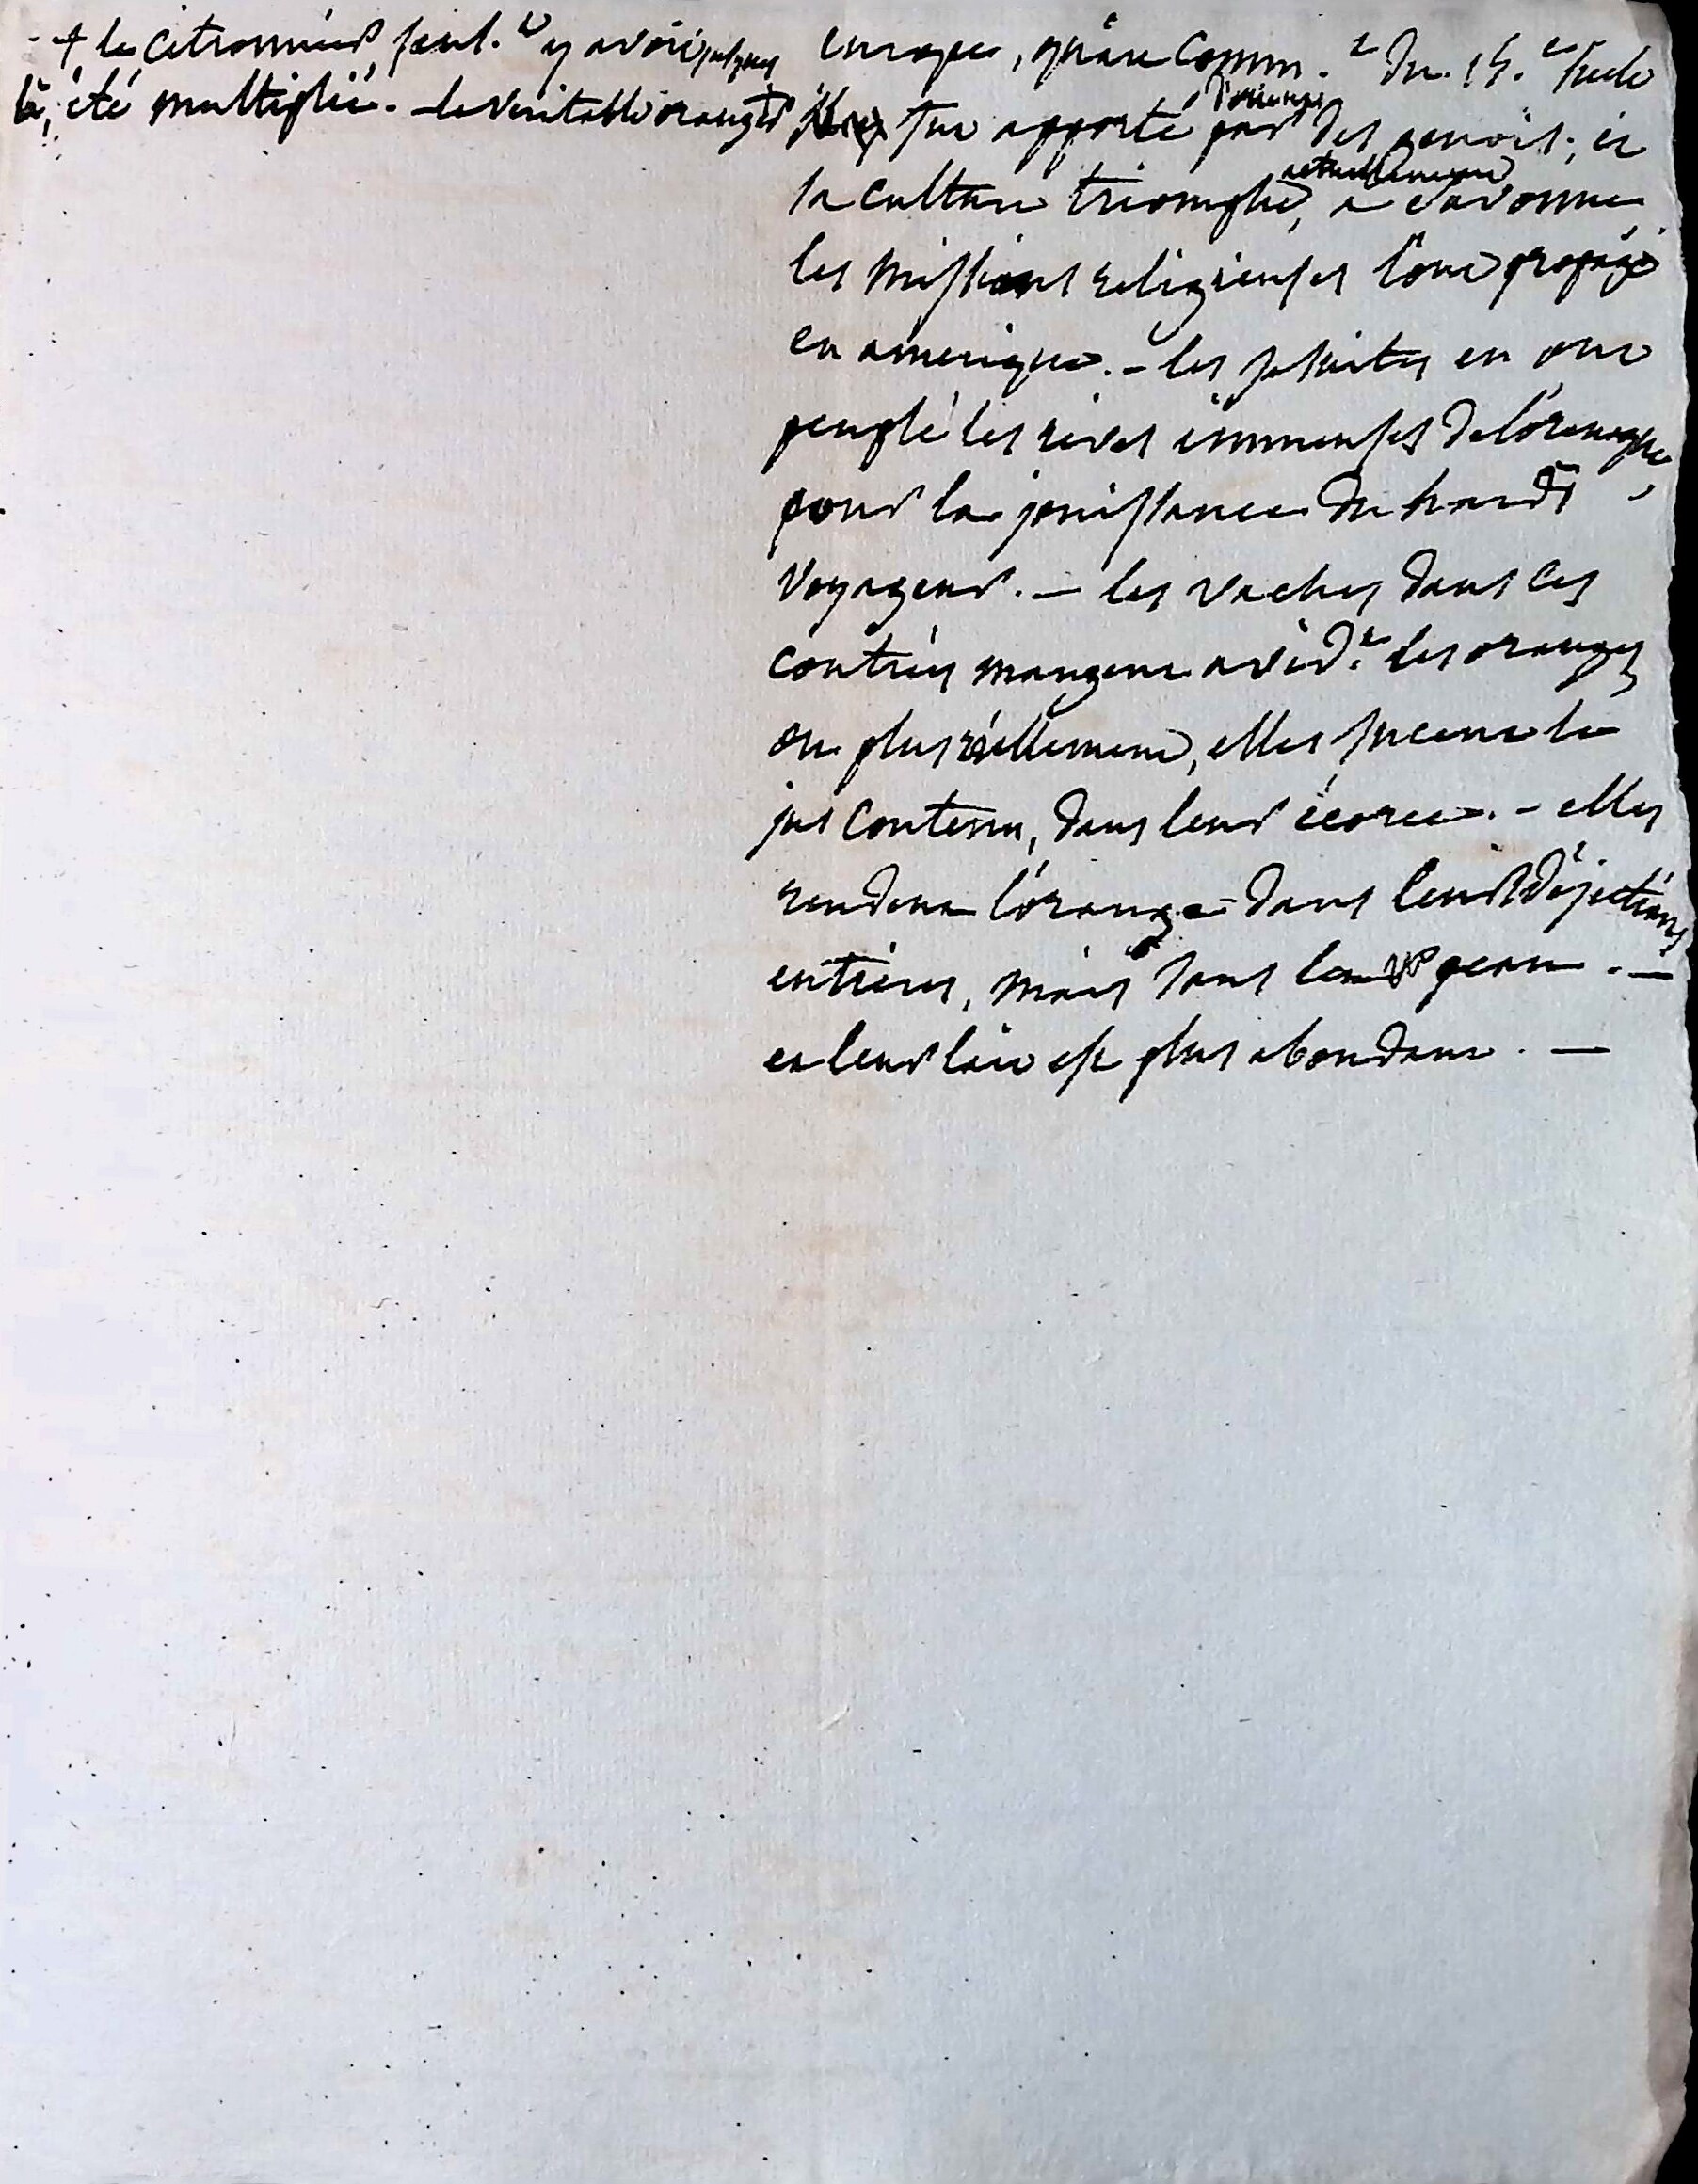 + le citronnier seul.t y avoit jusques
là, été multiplié. - le véritable oranger
europe, qu'au comm.t du 15.e siecle
fut apporté d'orient par des genois; et
sa culture triomphe, actuellement a savonne
les missions religieuses l'ont propagé
en amerique. - les jesuites en ont
peuplé les rives immenses de l'orenoque,
pour la jouissance du hardi
voyageur. - les vaches dans ces
contrées mangent avid.t les oranges
ou plus réellement, elles sucent le
jus contenu, dans leur écorce. - elles
rendent l'orange dans leurs déjections
entières, mais sans leur peau. -
et leur lait est plus abondant. -